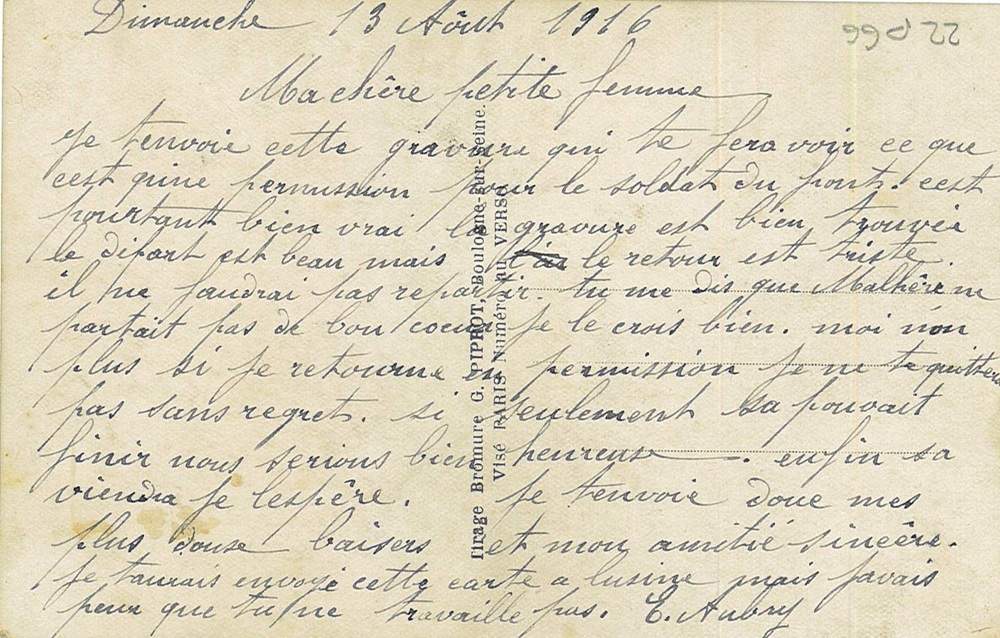 Dimanche 13 Aôut 1916
22 P 66
Ma chêre petite femme
Je tenvoie cette gravure qui te fera voir ce que
cest quine permission pour le soldat du front. cest
pourtant bien vrai la gravure est bien trouvée
le dipart est beau mais le retour est triste.
il ne faudrai pas repartir. tu me dis que Malhêre ne
partait pas de bon coeur je le crois bien. moi non
plus si je retourne en permission je ne te quitterai
pas sans regret. si seulement sa pouvait
finir nous serions bien heureux. enfin sa
viendra je lespêre. Je tenvoie donc mes
plus douse baisers et mon amitié sincêre.
Je taurais envoyé cette carte a lusine mais javais
peur que tu ne travaille pas. E. Aubry
Tirage Bromure G. PIPROT, Boulogne-sur-Seine.
Visé PARIS Numéro au VERSO